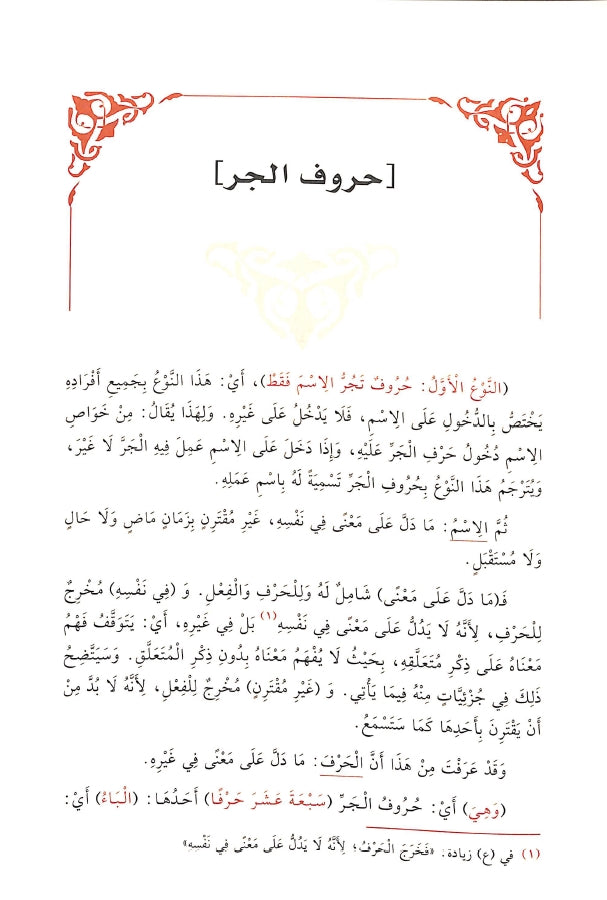 [حروف الجر]
(النَّوْعُ الْأَوَّلُ: حُرُوفٌ تَجُرُّ الِاسْمَ فَقَطْ)، أَيْ: هَذَا النَّوْعُ بِجَمِيعِ أَفْرَادِهِ
يَخْتَصُّ بِالدُّخُولِ عَلَى الِاسْمِ، فَلَا يَدْخُلُ عَلَى غَيْرِهِ. وَلِهَذَا يُقَالُ: مِنْ خَوَاصِّ
الِاسْمِ دُخُولُ حَرْفِ الْجَرِّ عَلَيْهِ، وَإِذَا دَخَلَ عَلَى الِاسْمِ عَمِلَ فِيهِ الْجَرَّ لَا غَيْرَ،
وَيُتَرْجَمُ هَذَا النَّوْعُ بِحُرُوفِ الْجَرِّ تَسْمِيَةً لَهُ بِاسْمِ عَمَلِهِ.
ثُمَّ الِاسْمُ: مَا دَلَّ عَلَى مَعْنًى فِي نَفْسِهِ، غَيْرِ مُقْتَرِنٍ بِزَمَانٍ مَاضٍ وَلَا حَالٍ
وَلَا مُسْتَقْبَلٍ.
فَـ(مَا دَلَّ عَلَى مَعْنًى) شَامِلٌ لَهُ وَلِلْحَرْفِ وَالْفِعْلِ. وَ (فِي نَفْسِهِ) مُخْرِجٌ
لِلْحَرْفِ، لِأَنَّهُ لَا يَدُلُّ عَلَى مَعْنًى فِي نَفْسِهِ(١) بَلْ فِي غَيْرِهِ، أَيْ: يَتَوَقَّفُ فَهْمُ
مَعْنَاهُ عَلَى ذِكْرِ مُتَعَلَّقِهِ، بِحَيْثُ لَا يُفْهَمُ مَعْنَاهُ بِدُونِ ذِكْرِ الْمُتَعَلَّقِ. وَسَيَتَّضِحُ
ذَلِكَ فِي جُزْئِيَّاتٍ مِنْهُ فِيمَا يَأْتِي. وَ (غَيْرِ مُقْتَرِنٍ) مُخْرِجٌ لِلْفِعْلِ، لِأَنَّهُ لَا بُدَّ مِنْ
أَنْ يَقْتَرِنَ بِأَحَدِهَا كَمَا سَتَسْمَعُ.
وَقَدْ عَرَفْتَ مِنْ هَذَا أَنَّ الْحَرْفَ: مَا دَلَّ عَلَى مَعْنًى فِي غَيْرِهِ.
(وَهِيَ) أَيْ: حُرُوفُ الْجَرِّ (سَبْعَةَ عَشَرَ حَرْفًا) أَحَدُهَا: (الْبَاءُ) أَيْ:
(١) في (ع) زيادة: «فَخَرَجَ الْحَرْفُ؛ لِأَنَّهُ لَا يَدُلُّ عَلَى مَعْنًى فِي نَفْسِهِ»